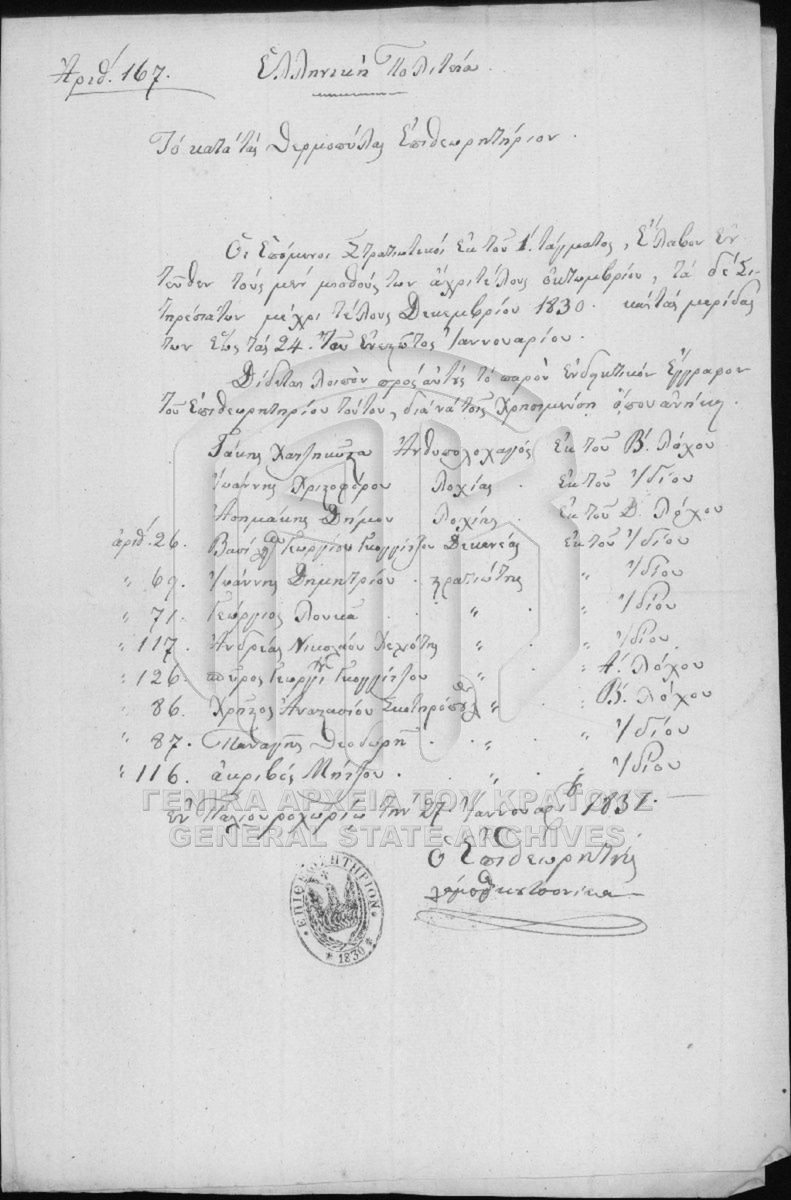 Ἀριθ. 167.
Ἑλληνική Πολιτεία.
Τό κατά τάς Θερμοπύλας Ἐπιθεωρητήριον.
Οἱ Ἑπόμενοι Στρατιωτικοί ἐκ τοῦ 1. τάγματος, ἔλαβον ἐν-
τεῦθεν τούς μέν μισθούς των ἄχρι τέλους ὀκτωμβρίου, τά δέ Σι-
τηρέσιάτων μέχρι τέλους Δεκεμβρίου 1830. καί τάς μερίδας
των ἕως τάς 24. τοῦ ἐνεστῶτος Ἰαννουαρίου.
Δίδεται λοιπόν πρός αὐτούς τό παρόν ἐνδεικτικόν ἔγγραφον
τοῦ Ἐπιθεωρητηρίου τούτου, διά νά τοῖς χρησιμεύση ὅπου ἀνήκει.
Γάκης Χατζηκώστα Ἀνθυπολοχαγός Ἐκ τοῦ Β. Λόχου
Ἰωάννης Χριστοφόρου Λοχίας. ἐκ τοῦ Ἰδίου
Ἀσημάκης Δήμου Λοχίας. ἐκ τοῦ Δ. Λόχου
ἀριθ. 26. Βασίλ. Γεωργίου Δεκανέας ἐκ τοῦ Ἰδίου
" 69. Ἰωάννης Δημητρίου. στρατιώτης " Ἰδίου
" 71. Γεώργιος Λουκᾶ. " . " Ἰδίου
" 117. Ἀνδρέας Νικολάου " . " Ἰδίου.
" 126. Γεωργ. " . " Α. Λόχου
" 86. Χρῆστος Ἀναστασίου " . " Β. Λόχου
" 87. Παναγῆς Θεοδωρῆ. . " . " Ἰδίου
" 116. ἀκριβός Μήτζου. . " . " Ἰδίου
ἐν Παλιουροχωρίῳ τήν 27 Ἰαννουαρ. 1831.
Ὁ Ἐπιθεωρητής
ΕΠΙΘΕΩΡΗΤΗΡΙΟΝ
* 1830 *
ΓΕΝΙΚΑ ΑΡΧΕΙΑ ΤΟΥ ΚΡΑΤΟΥΣ
GENERAL STATE ARCHIVES